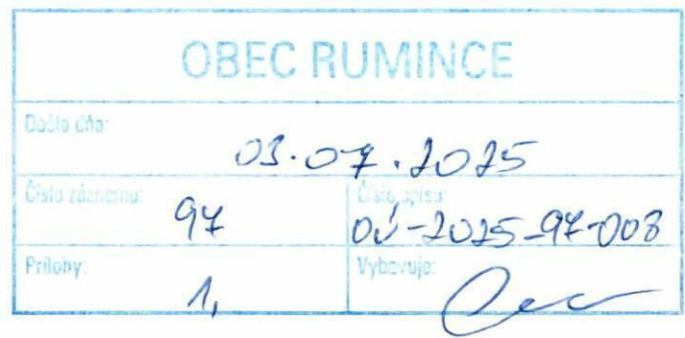 OBEC RUMINCE
Došlo dňa:
03.07.2025
Číslo záznamu: Číslo spisu:
97 OÚ-2025-97-008
Prílohy: Vybavuje:
1,